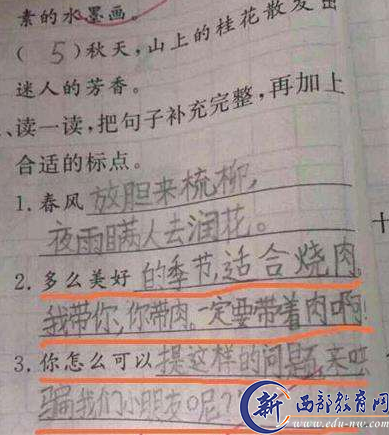 素的水墨画。
( 5 )秋天,山上的桂花散发出
迷人的芳香。
、读一读,把句子补充完整,再加上
合适的标点。
1. 春风 放胆来梳柳,
夜雨瞒人去润花。
2. 多么美好 的季节,适合烧肉。
我带你,你带肉。一定要带着肉啊!
3. 你怎么可以 提这样的问题,来
骗我们小朋友呢?
十
新 西部教育网
www.edu-nw.com